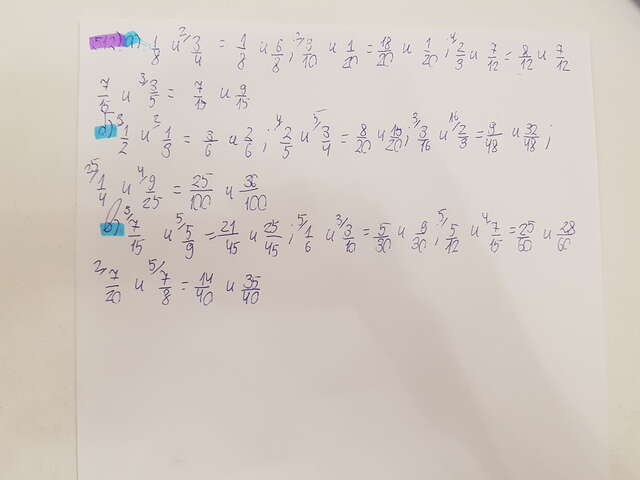 542) а) 1/8 и ²/3/4 = 1/8 и 6/8; ²/9/10 и 1/20 = 18/20 и 1/20; ⁴/2/3 и 7/12 = 8/12 и 7/12
7/15 и ³/3/5 = 7/15 и 9/15
б) ³/1/2 и ²/1/3 = 3/6 и 2/6; ⁴/2/5 и ⁵/3/4 = 8/20 и 15/20; ³/3/16 и ¹⁶/2/3 = 9/48 и 32/48;
²⁵/1/4 и ⁴/9/25 = 25/100 и 36/100
в) ³/7/15 и ⁵/5/9 = 21/45 и 25/45; ⁵/1/6 и ³/3/10 = 5/30 и 9/30; ⁵/5/12 и ⁴/7/15 = 25/60 и 28/60
²/7/20 и ⁵/7/8 = 14/40 и 35/40